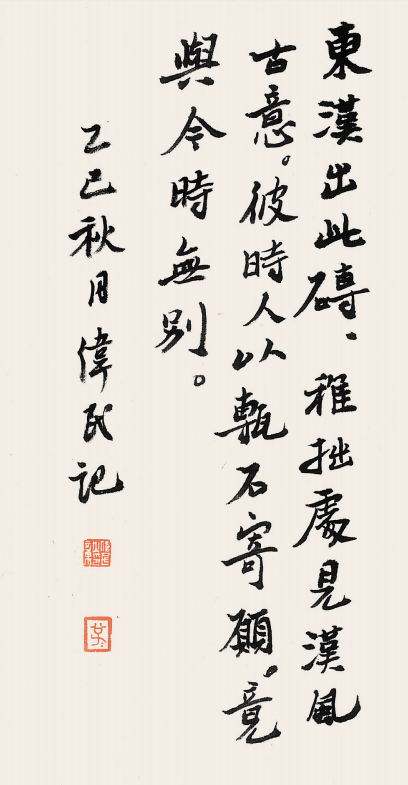 東漢出此磚、稚拙處見漢風
古意。彼時人以甎石寄願。竟
與今時無別。
乙巳秋月偉民記